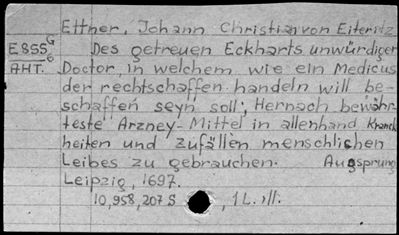 Ettner, Johann Christian von Eiteritz
E855G Des getreuen Eckharts unwürdiger
AHT.6 Doctor, in welchem wie ein Medicus
der rechtschaffen handeln will be-
schaffen seyn soll, Hernach bewähr-
teste Arzney-Mittel in allenhand Kranck
heiten und zufällen menschlichen
Leibes zu gebrauchen. Augsprung
Leipzig, 1697.
10,958,207 S , 1 L. ill.